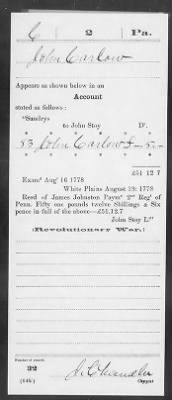 C 2 Pa.
John Carlow
Appears as shown below in an
Account
stated as follows:
"Sundrys
to John Stoy Dr.
53 John Carlow £ - 5 - -
£51 12 7
Exams Augt 16 1778
White Plains August 19: 1778
Recd of James Johnston Paymr 2nd Regt of
Penn. Fifty one pounds twelve Shillings & Six
pence in full of the above—£51.12.7
John Stoy Lt"
(Revolutionary War.)
Number of record:
32
(646) J. C. Chandler
Copyist